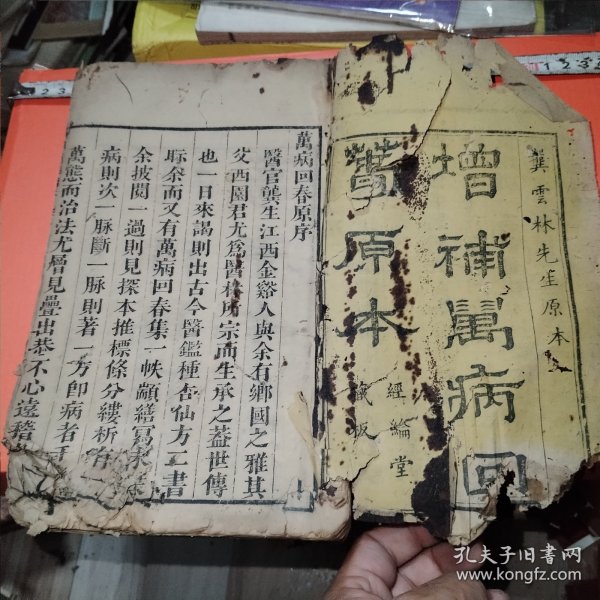 龔雲林先生原本
增補萬病回
春原本
經綸堂
藏板
萬病回春原序
醫官龔生江西金谿人與余有鄉國之雅其
父西園君尤為醫林所宗而生承之蓋世傳
也一日來謁則出古今醫鑑種杏仙方二書
眎余而又有萬病回春集一帙顓繕寫未
余披閱一過則見探本推標條分縷析有一
病則次一脉斷一脉則著一方卽病者
萬態而治法尤層見疊出恭不心遠稽
孔夫子旧書网
www.kongfz.com
1 2 3 2
2 3